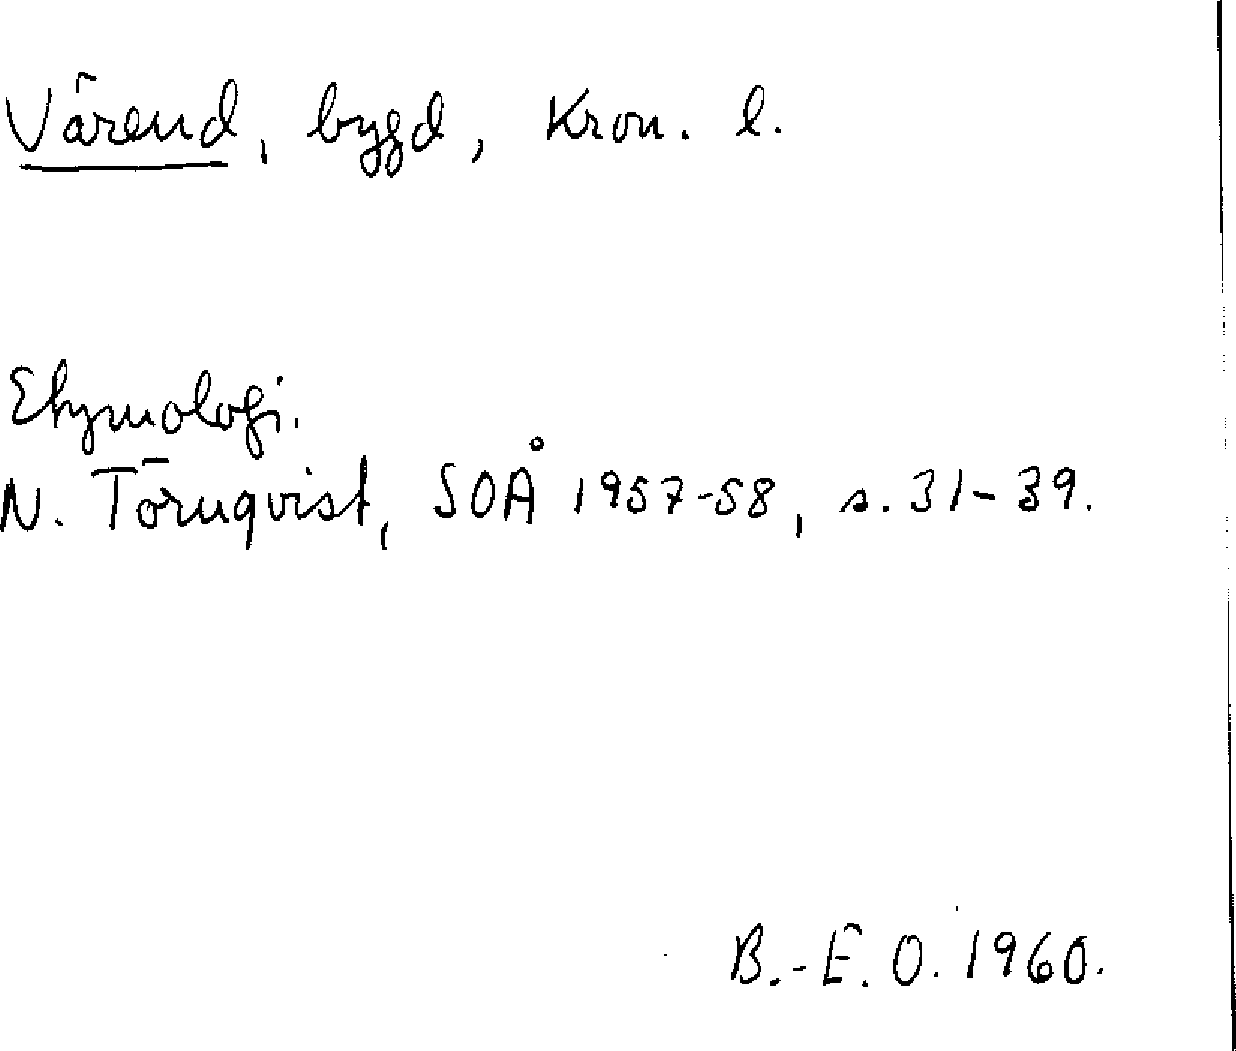 Värend, bygd, Kron. l.
Etymologi.
N. Törnqvist, SOÅ 1957-58, s. 31-39.
B.-E. O. 1960.